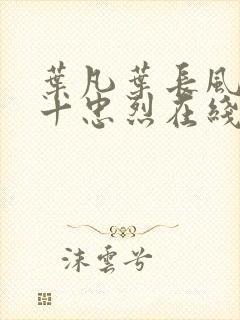 葉凡葉長風
十忠烈在綫
沫雲兮